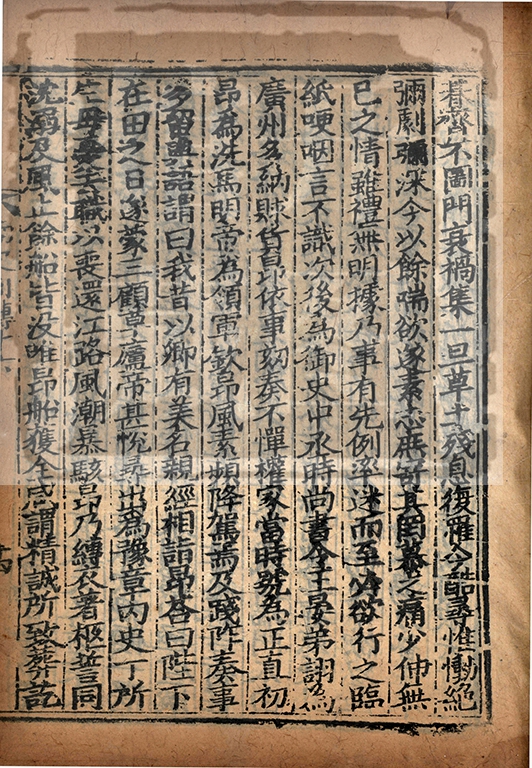 朞齊不圖門衰禍集一旦草土殘息復罹今酷尋惟慟絶
彌劇彌深今以餘喘欲遂素志庶寄其罔慕之痛少伸無
已之情雖禮無明據乃事有先例率迷而至必欲行之臨
紙哽咽言不識次後為御史中丞時尚書令王晏弟詡為
廣州多納賕貨昂依事劾奏不憚權家當時號為正直初
昂為洗馬明帝為領軍欽昂風素頻降駕焉及踐阼奏事
多留與語謂曰我昔以卿有美名親經相詣昂荅曰陛下
在田之日遂蒙三顧草廬帝甚悅尋出為豫章内史丁所
生母憂去職以喪還江路風潮暴駭昂乃縛衣著柩誓同
沈溺及風止餘船皆没唯昂船獲全咸謂精誠所致葬訖